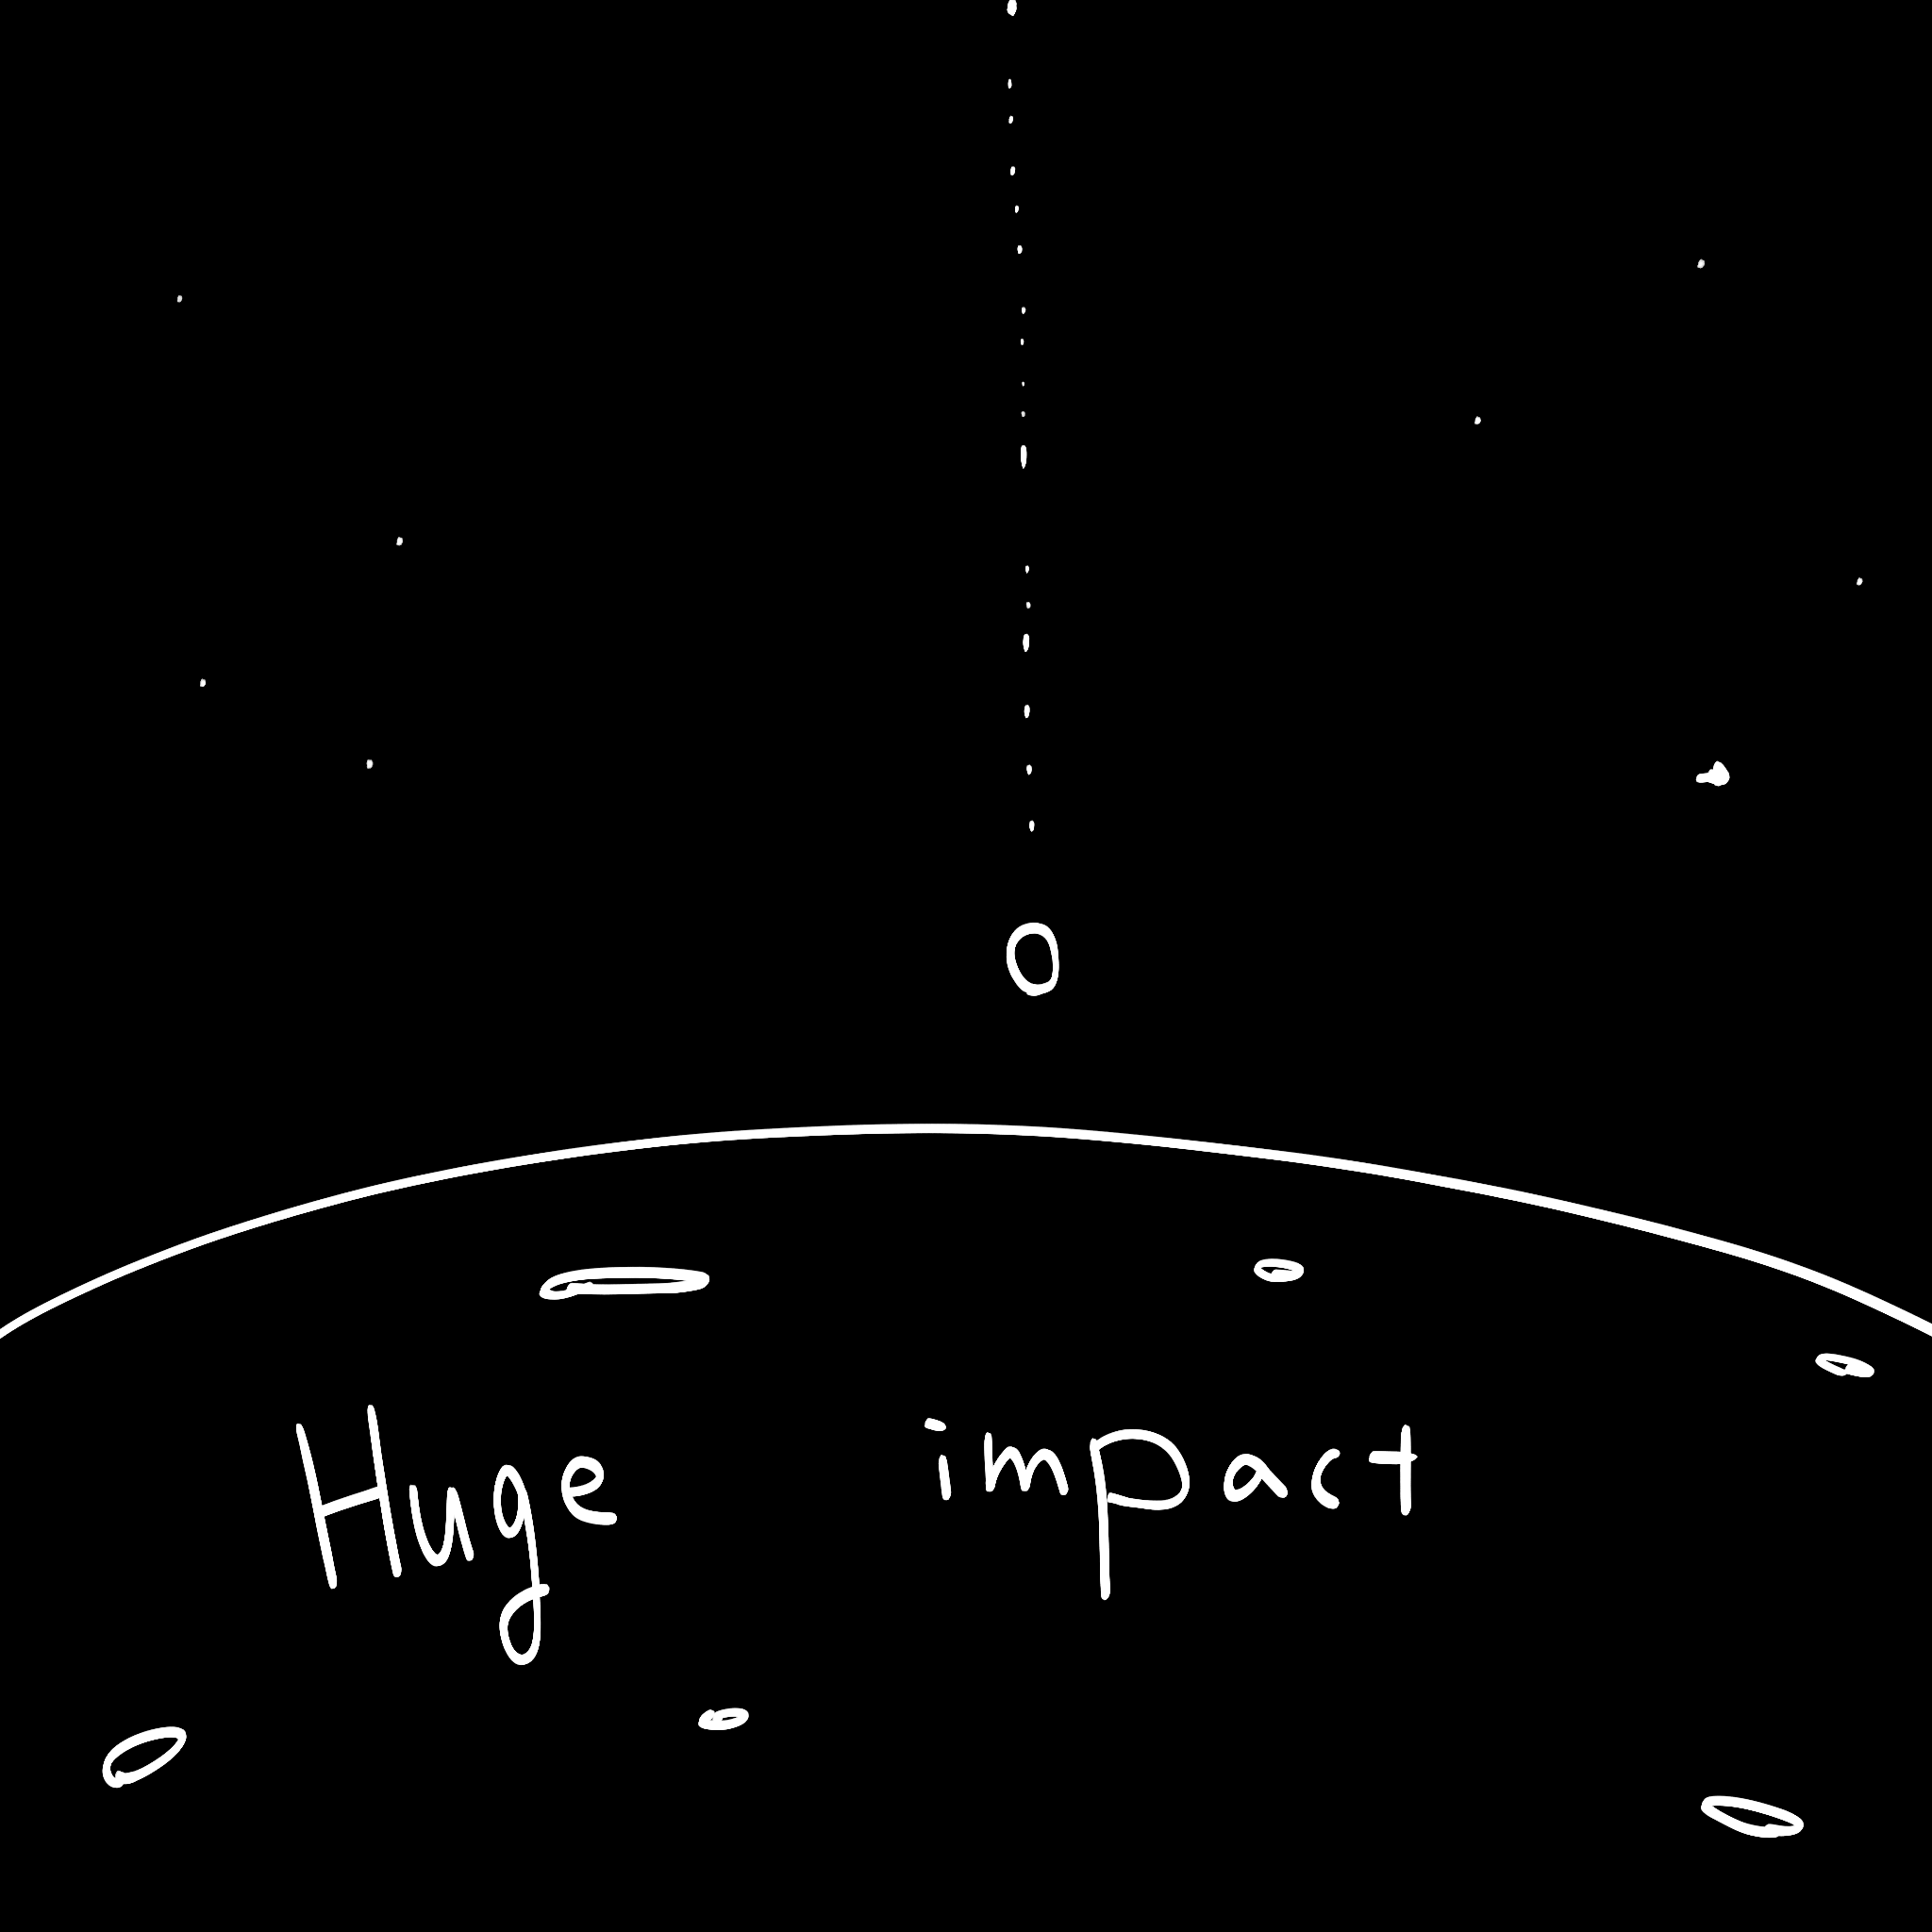 Huge impact